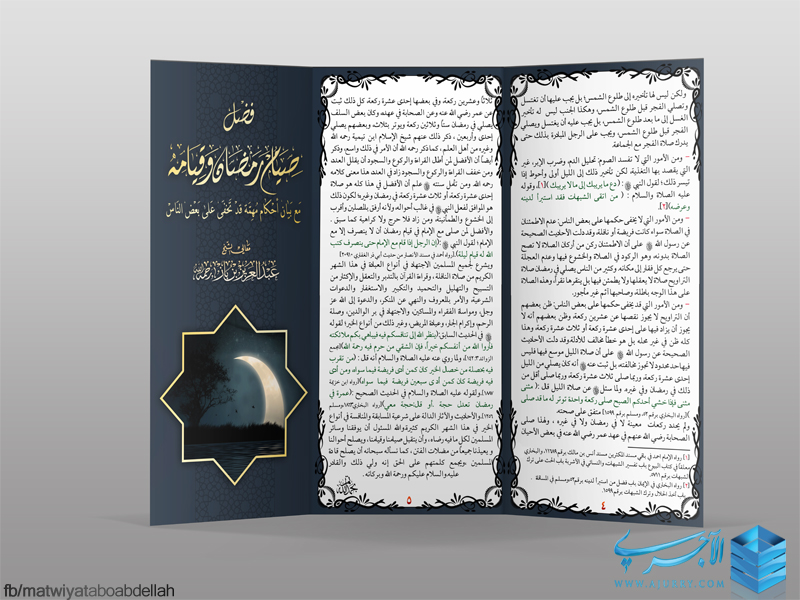 فضل
صيام رمضان وقيامه
مع بيان أحكام مهمة قد تخفى على بعض الناس
عبد العزيز بن باز رحمه الله
ولكن ليس لها تأخيره إلى طلوع الشمس؛ بل يجب عليها أن تغتسل
وتصلي الفجر قبل طلوع الشمس، وهكذا الجنب ليس له تأخير
الغسل إلى ما بعد طلوع الشمس، بل يجب عليه أن يغتسل ويصلي
الفجر قبل طلوع الشمس، ويجب على الرجل المبادرة بذلك حتى
يدرك صلاة الفجر مع الجماعة.
– ومن الأمور التي لا تفسد الصوم تحليل الدم، وضرب الإبر، غير
التي يقصد بها التغذية، لكن تأخير ذلك إلى الليل أولى وأحوط إذا
تيسر ذلك؛ لقول النبي ﷺ: (دع ما يريبك إلى ما لا يريبك)[١]، وقوله
عليه الصلاة والسلام: ( من اتقى الشبهات فقد استبرأ لدينه
وعرضه)[٢].
– ومن الأمور التي يخفى حكمها على بعض الناس: عدم الاطمئنان
في الصلاة سواء كانت فريضة أو نافلة، وقد دلت الأحاديث الصحيحة
عن رسول الله ﷺ على أن الاطمئنان ركن من أركان الصلاة لا تصح
الصلاة بدونه، وهو الركود في الصلاة والخشوع فيها وعدم العجلة
حتى يرجع كل فقار إلى مكانه، وكثير من الناس يصلي في رمضان صلاة
التراويح صلاة لا يعقلها ولا يطمئن فيها بل ينقرها نقرا، وهذه الصلاة
على هذا الوجه باطلة، وصاحبها آثم غير مأجور.
– ومن الأمور التي قد يخفى حكمها على بعض الناس: ظن بعضهم
أن التراويح لا يجوز نقصها عن عشرين ركعة، وظن بعضهم أنه لا
يجوز أن يزاد فيها على إحدى عشرة ركعة أو ثلاث عشرة ركعة، وهذا
كله ظن في غير محله بل هو خطأ مخالف للأدلة وقد دلت الأحاديث
الصحيحة عن رسول الله ﷺ على أن صلاة الليل موسع فيها فليس
فيها حد محدود لا تجوز مخالفته، بل ثبت عنه ﷺ أنه كان يصلي من الليل
إحدى عشرة ركعة، وربما صلى ثلاث عشرة ركعة، وربما صلى أقل من
ذلك في رمضان وفي غيره. ولما سئل ﷺ عن صلاة الليل قال: ( مثنى
مثنى فإذا خشي أحدكم الصبح صلى ركعة واحدة توتر له ما قد صلى
متفق على صحته.
ولم يحدد ركعات معينة لا في رمضان ولا في غيره ، ولهذا صلى
الصحابة رضي الله عنهم في عهد عمر رضي الله عنه في بعض الأحيان
٤
ثلاثاً وعشرين ركعة، وفي بعضها إحدى عشرة ركعة، كل ذلك ثبت
عن عمر رضي الله عنه وعن الصحابة في عهده. وكان بعض السلف
يصلي في رمضان ستاً وثلاثين ركعة ويوتر بثلاث، وبعضهم يصلي
إحدى وأربعين ، ذكر ذلك عنهم شيخ الإسلام ابن تيمية رحمه الله
وغيره من أهل العلم، كما ذكر رحمه الله أن الأمر في ذلك واسع، وذكر
أيضاً أن الأفضل لمن أطال القراءة والركوع والسجود أن يقلل العدد،
ومن خفف القراءة والركوع والسجود زاد في العدد، هذا معنى كلامه
رحمه الله. ومن تأمل سنته ﷺ علم أن الأفضل في هذا كله هو صلاة
إحدى عشرة ركعة، أو ثلاث عشرة ركعة، في رمضان وغيره؛ لكون ذلك
هو الموافق لفعل النبي ﷺ في غالب أحواله، ولأنه أرفق بالمصلين وأقرب
إلى الخشوع والطمأنينة، ومن زاد فلا حرج ولا كراهية كما سبق .
والأفضل لمن صلى مع الإمام في قيام رمضان أن لا ينصرف إلا مع
الإمام؛ لقول النبي ﷺ: (إن الرجل إذا قام مع الإمام حتى ينصرف كتب
الله له قيام ليلة)
ويشرع لجميع المسلمين الاجتهاد في أنواع العبادة في هذا الشهر
الكريم من صلاة النافلة، وقراءة القرآن بالتدبر والتعقل والإكثار من
التسبيح والتهليل والتحميد والتكبير والاستغفار والدعوات
الشرعية، والأمر بالمعروف والنهي عن المنكر، والدعوة إلى الله عز
وجل، ومواساة الفقراء والمساكين، والاجتهاد في بر الوالدين، وصلة
الرحم، وإكرام الجار، وعيادة المريض، وغير ذلك من أنواع الخير؛ لقوله
ﷺ في الحديث السابق: (ينظر الله إلى تنافسكم فيه فيباهي بكم ملائكته
فأروا الله من أنفسكم خيراً، فإن الشقي من حرم فيه رحمة الله)
ولما روي عنه عليه الصلاة والسلام أنه قال: (من تقرب
فيه بخصلة من خصال الخير كان كمن أدى فريضة فيما سواه، ومن أدى
فيه فريضة كان كمن أدى سبعين فريضة فيما سواه)
ولقوله عليه الصلاة والسلام في الحديث الصحيح: (عمرة في
رمضان تعدل حجة أو قال حجة معي)
والأحاديث والآثار الدالة على شرعية المسابقة والمنافسة في أنواع
الخير في هذا الشهر الكريم كثيرة. والله المسئول أن يوفقنا وسائر
المسلمين لكل ما فيه رضاه، وأن يتقبل صيامنا وقيامنا، ويصلح أحوالنا
ويعيذنا جميعاً من مضلات الفتن، كما نسأله سبحانه أن يصلح قادة
المسلمين ويجمع كلمتهم على الحق إنه ولي ذلك والقادر
عليه والسلام عليكم ورحمة الله وبركاته.
٥
الآجري
WWW.AJURRY.COM
fb/matwiyataboabdellah